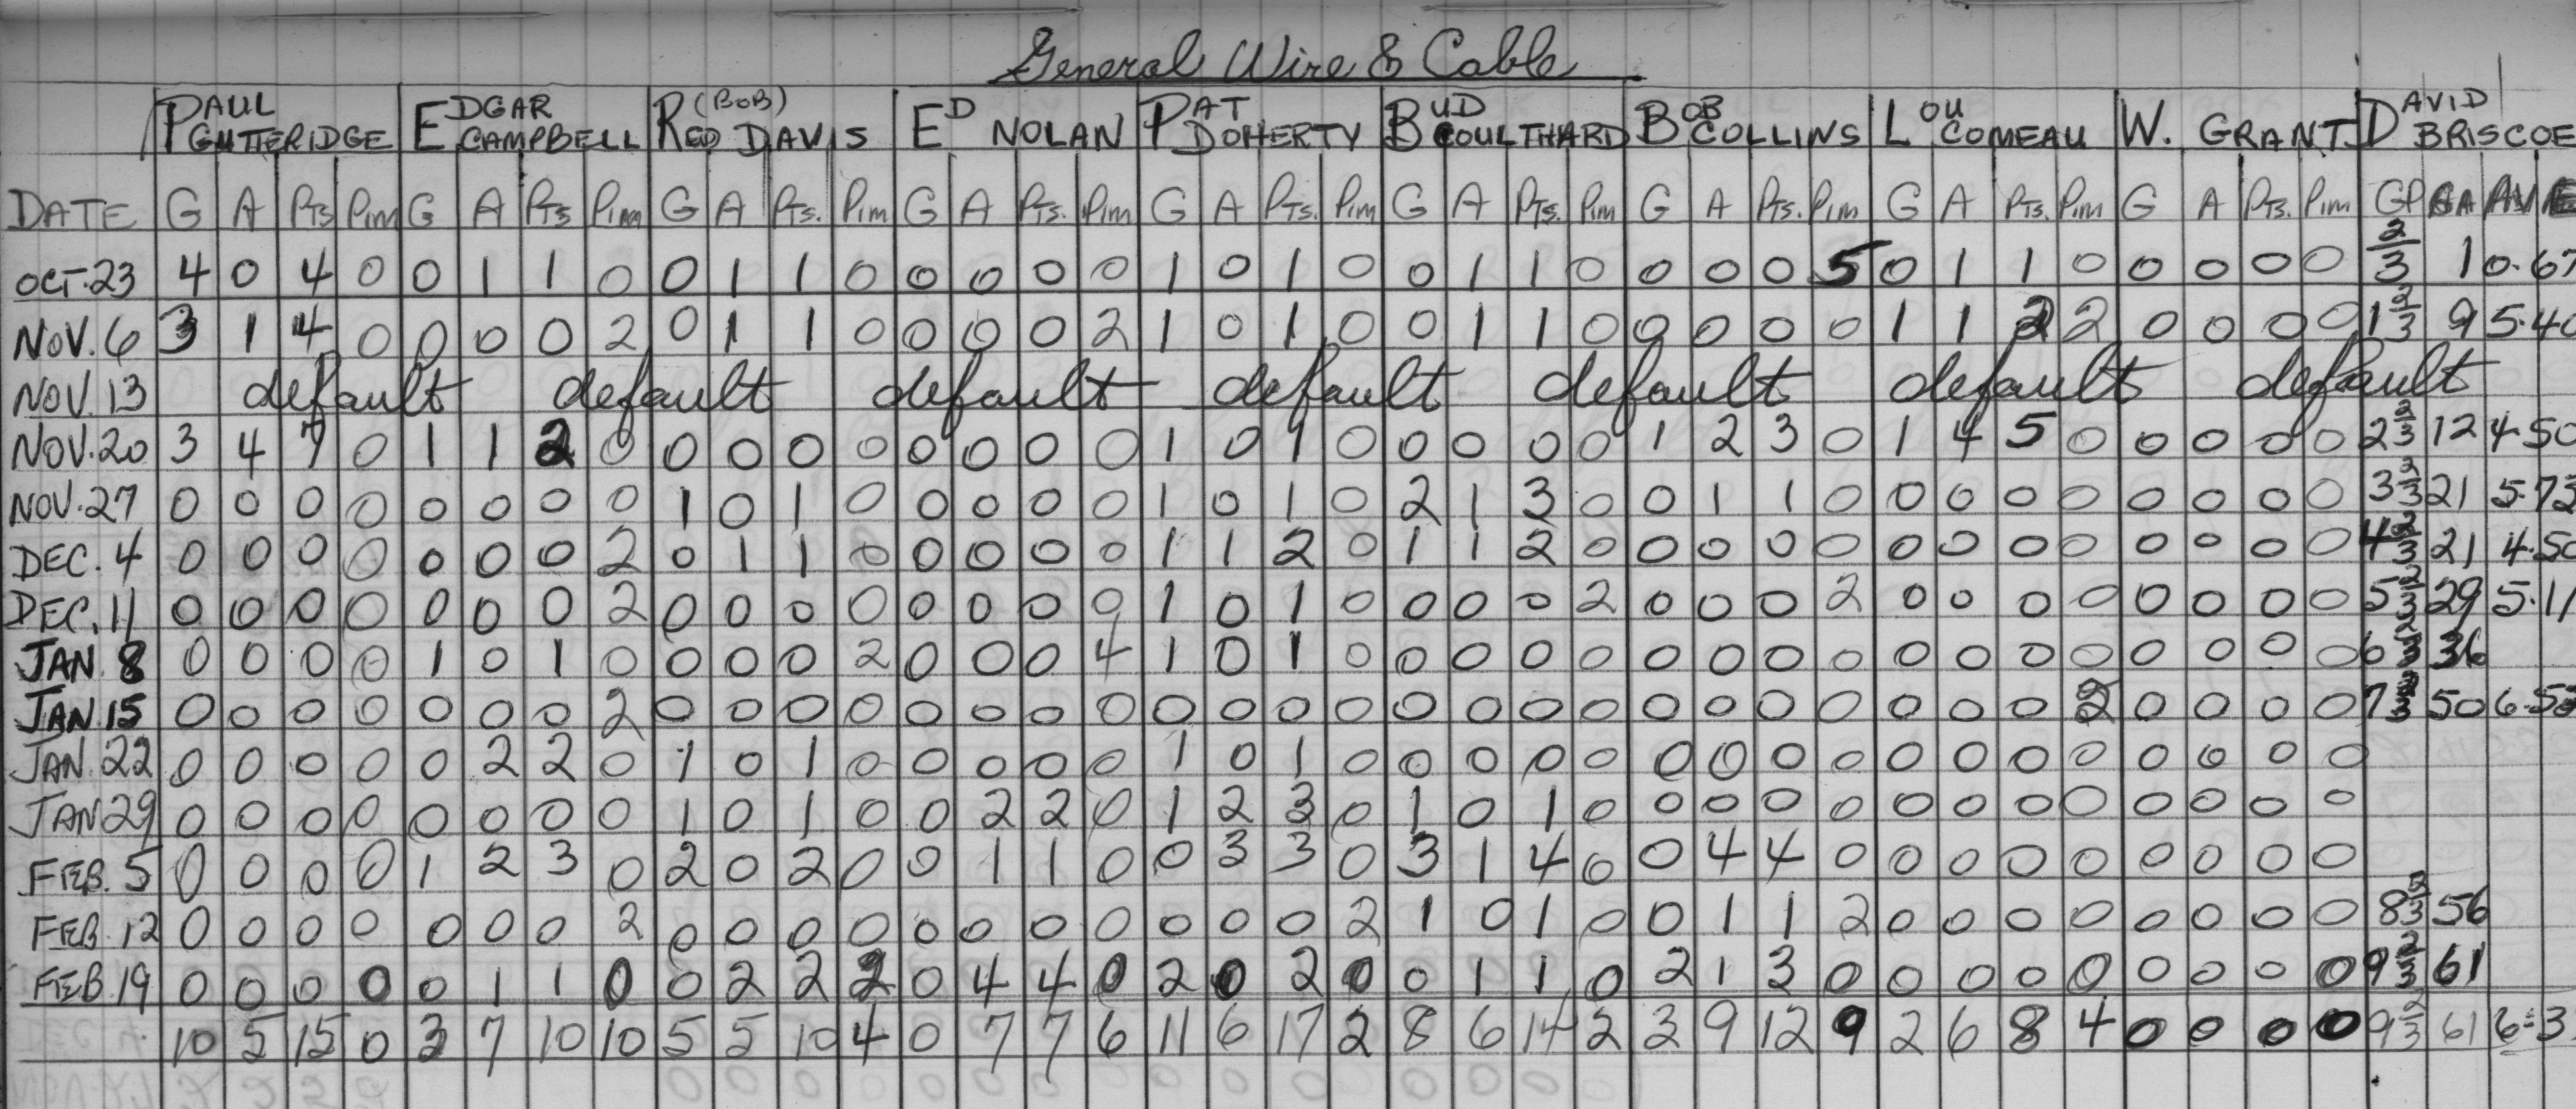 General Wire & Cable
PAUL GUTTERIDGE EDGAR CAMPBELL RED (BOB) DAVIS ED NOLAN PAT DOHERTY BUD COULTHARD BOB COLLINS LOU COMEAU W. GRANT DAVID BRISCOE
DATE G A Pts Pim G A Pts Pim G A Pts. Pim G A Pts. Pim G A Pts. Pim G A Pts. Pim G A Pts. Pim G A Pts. Pim G A Pts. Pim GP GA AVE
OCT.23 4 0 4 0 0 1 1 0 0 1 1 0 0 0 0 0 1 0 1 0 0 1 1 0 0 0 0 5 0 1 1 0 0 0 0 0 2/3 1 0.67
NOV.6 3 1 4 0 0 0 0 2 0 1 1 0 0 0 0 2 1 0 1 0 0 1 1 0 0 0 0 0 1 1 2 2 0 0 0 0 1 2/3 9 5.40
NOV.13 default default default default default default default
NOV.20 3 4 7 0 1 1 2 0 0 0 0 0 0 0 0 0 1 0 1 0 0 0 0 0 1 2 3 0 1 4 5 0 0 0 0 0 2 2/3 12 4.50
NOV.27 0 0 0 0 0 0 0 0 1 0 1 0 0 0 0 0 1 0 1 0 2 1 3 0 0 1 1 0 0 0 0 0 0 0 0 0 3 2/3 21 5.73
DEC.4 0 0 0 0 0 0 0 2 0 1 1 0 0 0 0 0 1 1 2 0 1 1 2 0 0 0 0 0 0 0 0 0 0 0 0 0 4 2/3 21 4.50
DEC.11 0 0 0 0 0 0 0 2 0 0 0 0 0 0 0 0 1 0 1 0 0 0 0 2 0 0 0 2 0 0 0 0 0 0 0 0 5 2/3 29 5.11
JAN.8 0 0 0 0 1 0 1 0 0 0 0 2 0 0 0 4 1 0 1 0 0 0 0 0 0 0 0 0 0 0 0 0 0 0 0 0 6 2/3 36
JAN.15 0 0 0 0 0 0 0 2 0 0 0 0 0 0 0 0 0 0 0 0 0 0 0 0 0 0 0 0 0 0 0 2 0 0 0 0 7 2/3 50 6.53
JAN.22 0 0 0 0 0 2 2 0 1 0 1 0 0 0 0 0 1 0 1 0 0 0 0 0 0 0 0 0 0 0 0 0 0 0 0 0
JAN29 0 0 0 0 0 0 0 0 1 0 1 0 0 2 2 0 1 2 3 0 1 0 1 0 0 0 0 0 0 0 0 0 0 0 0 0
FEB.5 0 0 0 0 1 2 3 0 2 0 2 0 0 1 1 0 0 3 3 0 3 1 4 0 0 4 4 0 0 0 0 0 0 0 0 0
FEB.12 0 0 0 0 0 0 0 2 0 0 0 0 0 0 0 0 0 0 0 2 1 0 1 0 0 1 1 2 0 0 0 0 0 0 0 0 8 2/3 56
FEB.19 0 0 0 0 0 1 1 0 0 2 2 2 0 4 4 0 2 0 2 0 0 1 1 0 2 1 3 0 0 0 0 0 0 0 0 0 9 2/3 61
10 5 15 0 3 7 10 10 5 5 10 4 0 7 7 6 11 6 17 2 8 6 14 2 3 9 12 9 2 6 8 4 0 0 0 0 9 2/3 61 6.3